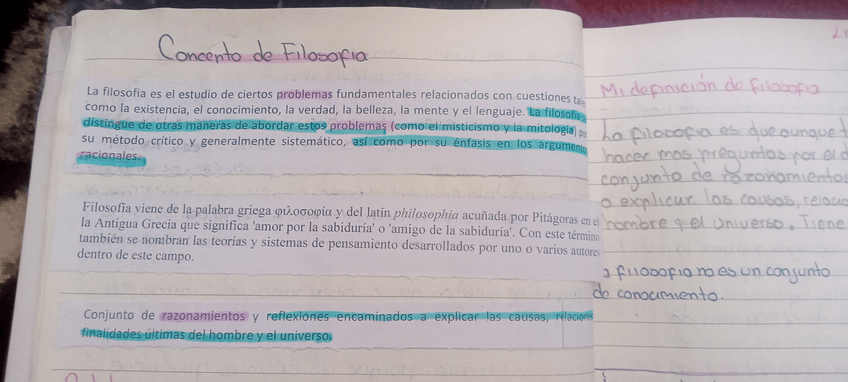 Concepto de Filosofía
La filosofía es el estudio de ciertos problemas fundamentales relacionados con cuestiones
como la existencia, el conocimiento, la verdad, la belleza, la mente y el lenguaje. La filosofía
distingue de otras maneras de abordar estos problemas (como el misticismo y la mitología)
su método crítico y generalmente sistemático, así como por su énfasis en los
racionales.
Filosofía viene de la palabra griega φιλοσοφία y del latín philosophia acuñada por Pitágoras en
la Antigua Grecia que significa 'amor por la sabiduría' o 'amigo de la sabiduría'. Con este término
también se nombran las teorías y sistemas de pensamiento desarrollados por uno o varios autores
dentro de este campo.
Conjunto de razonamientos y reflexiones encaminados a explicar las causas,
finalidades últimas del hombre y el universo.
Mi definición de filosofía
La filosofía es que aunque
hacer mas preguntas por el
conjunto de razonamientos
a explicar las causas,
hombre y el universo. Tiene
a filosofia no es un conjunto
de conocimiento.